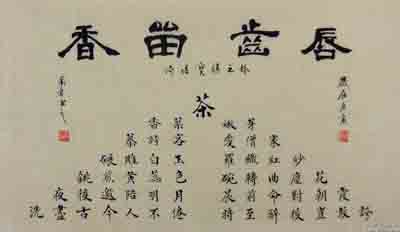 唇齒留香
錄元稹寶塔詩
茶
香葉 嫩芽
慕詩客 愛僧家
碾雕白玉 羅織紅紗
銚煎黃蕊色 碗轉曲塵花
夜後邀陪明月 晨前獨對朝霞
洗盡古今人不倦 將知醉後豈堪誇